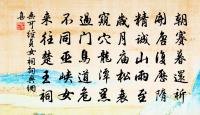 朝賽暮還祈
開唐復歷隋
精誠山雨至
歲月廟松衰
窺穴龍潭黑
過門鳥道危
不同巫峽女
來往楚王祠
無可經貞女祠